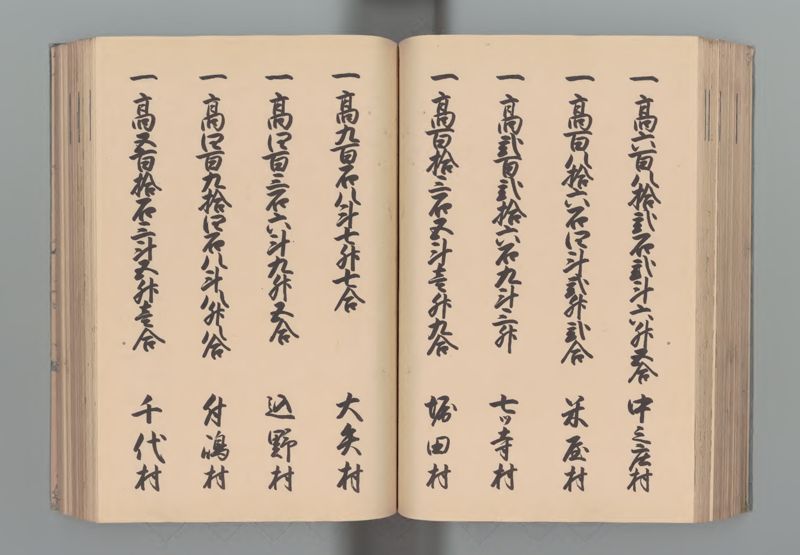 一 高六百八拾弐石弐斗六升五合 中之庄村
一 高百八拾六石四斗弐升弐合 米屋村
一 高弐百弐拾六石九斗三升 七ツ寺村
一 高百拾三石五斗壱升九合 堀田村
一 高九百石八斗七升七合 大矢村
一 高四百三石六斗九升五合 込野村
一 高四百九拾四石八斗八升八合 付嶋村
一 高五百拾石三斗五升壱合 千代村